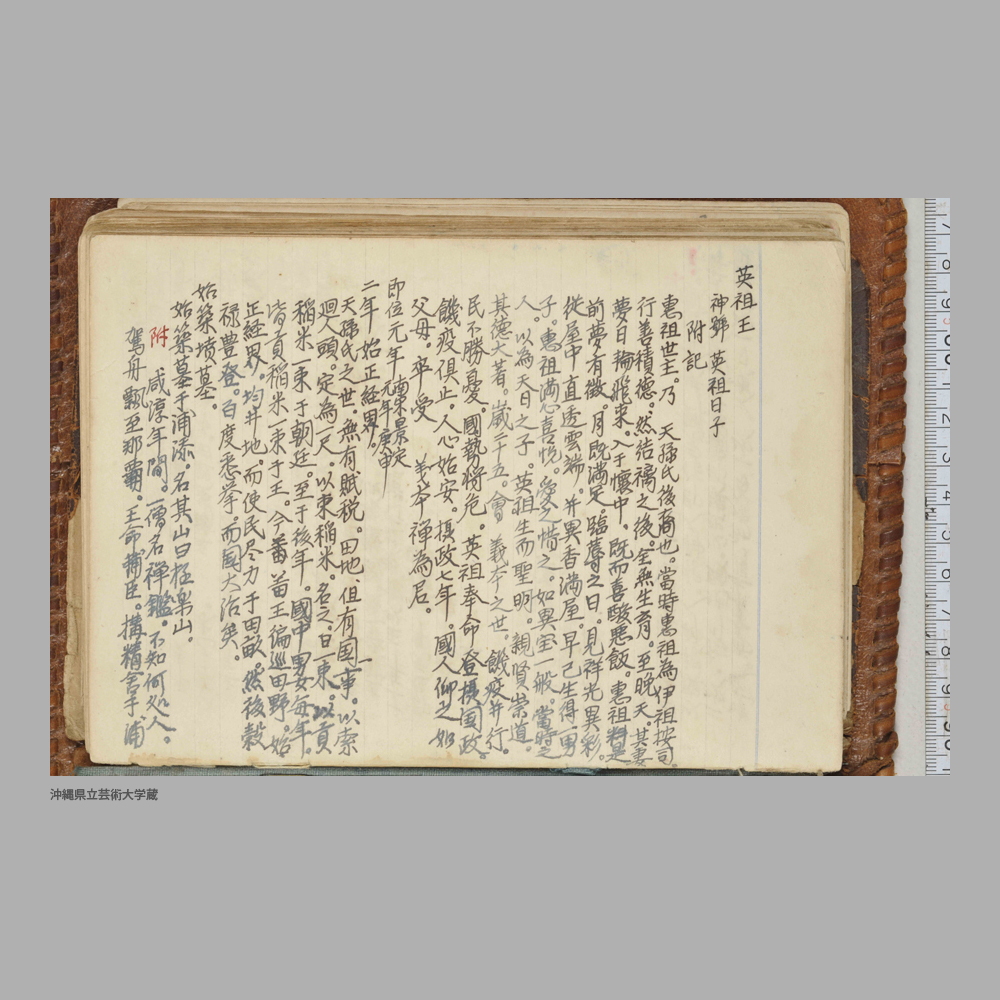 英祖王
神號 英祖日子
附記
惠祖世主。乃 天孫氏後裔也。當時惠祖為伊祖按司。
行善積德。然結褵之後。全無生育。至晚天。其妻
夢日輪飛來。入于懷中。既而喜酸惡飯。惠祖料是
前夢有徵。月既滿足。臨蓐之日。見祥光異彩。
從屋中直透雲端。并異香滿屋。早已生得一男
子。惠祖满心喜悦。愛之惜之。如異宝一般。當時之
人。以為天日之子。英祖生而聖明。親賢崇道。
其德大著。歲二十五。會 義本之世。饑疫并行。
民不勝憂。國勢将危。英祖奉命 登摂国政。
饑疫俱止。人心始安。摂政七年。國人仰之如
父母。卒受 義本禅為君。
即位元年 南宋景定元年庚申
二年 始正経界。
天孫氏之世。無有賦税。田地但有国事。以索
廻人頭。定為一尺。以束稲米。名之曰一束。以貢
稲米一束于朝廷。至于孩年。國中男女每年
皆貢稲米一束于王。今番 苗王徧巡田野。始
正経界。均井地。而使民尽力于田畝。然後穀
禄豊登。百度悉挙。而国大治矣。
始築墳墓。
始築墓于浦添。名其山曰極楽山。
附 咸淳年間。一僧名禅鑑。不知何処人。
駕舟飄至那覇。王命輔臣。搆精舎于浦
沖縄県立芸術大学蔵